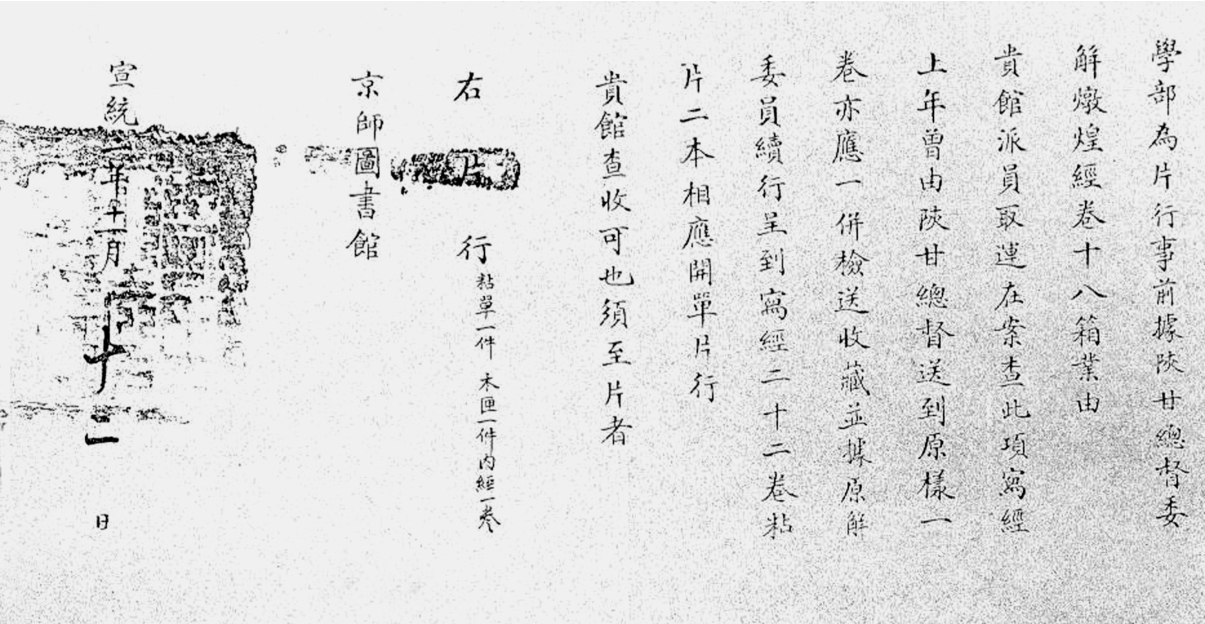 學部為片行事前據陝甘總督委
解燉煌經卷十八箱業由
貴館派員取運在案查此項寫經
上年曾由陝甘總督送到原樣一
卷亦應一併檢送收藏並據原解
委員續行呈到寫經二十二卷粘
片二本相應開單片行
貴館查收可也須至片者
右片行粘單一件 木匣一件內經一卷
京師圖書館
宣統二年十一月十二日